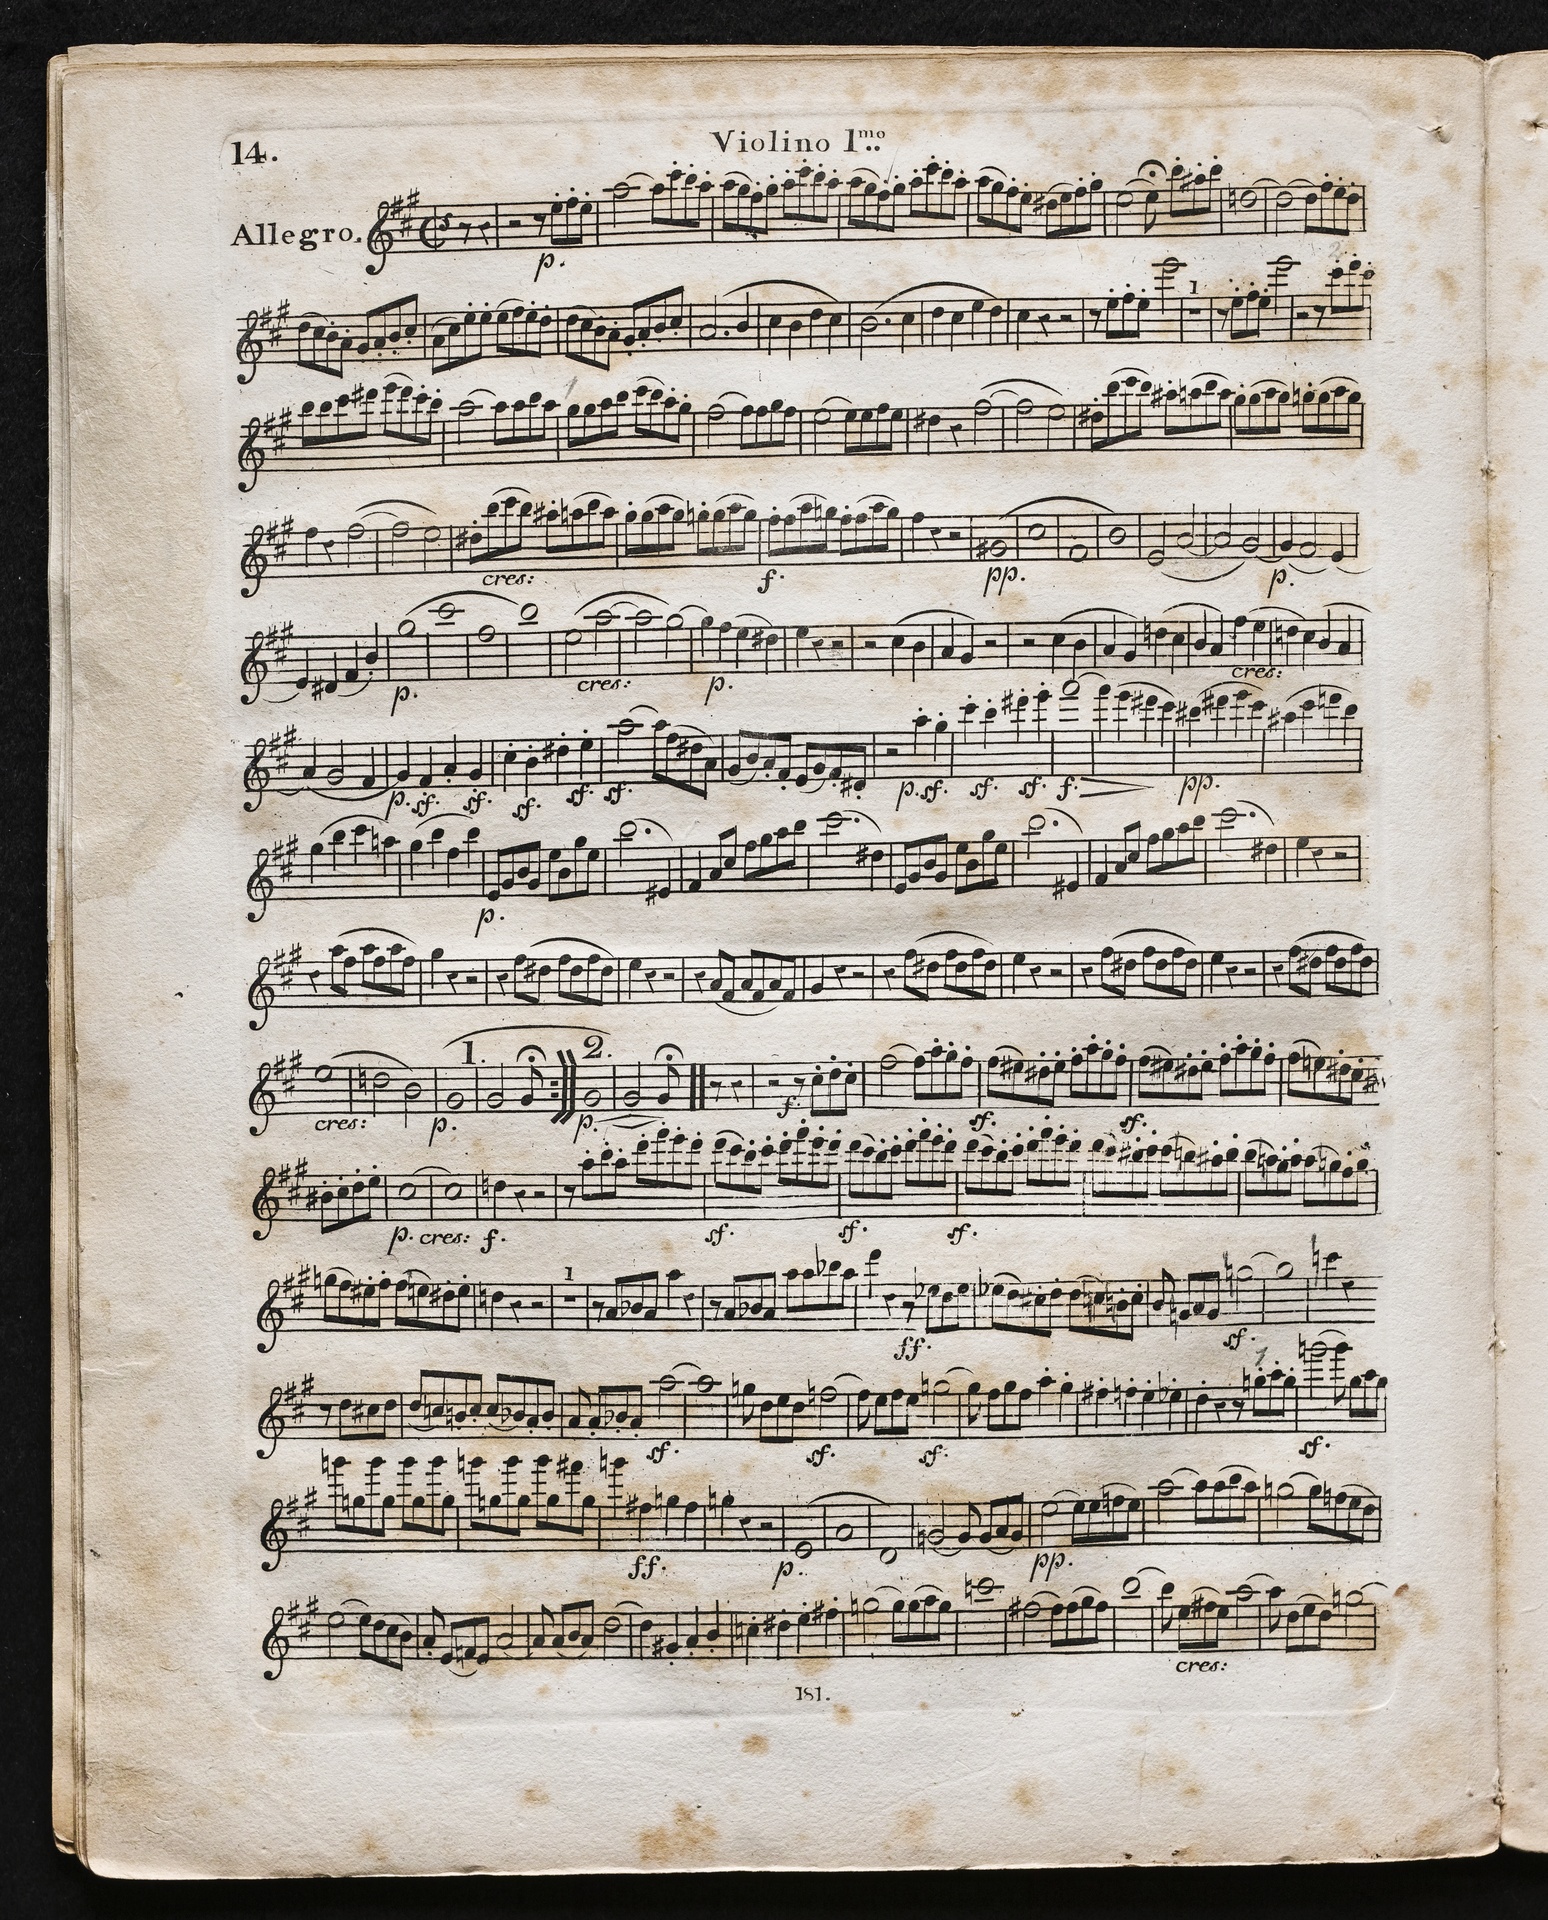 14.
Violino 1mo
Allegro.
p.
1
cres: f. pp. p.
p. cres: p. cres:
p. sf. sf. sf. sf. sf. p. sf. sf. sf. f. pp.
p.
1. 2.
cres: p. p. f. sf. sf.
p. cres: f. sf. sf. sf.
1
ff. sf.
sf. sf. sf. sf.
ff. p. pp.
cres:
181.